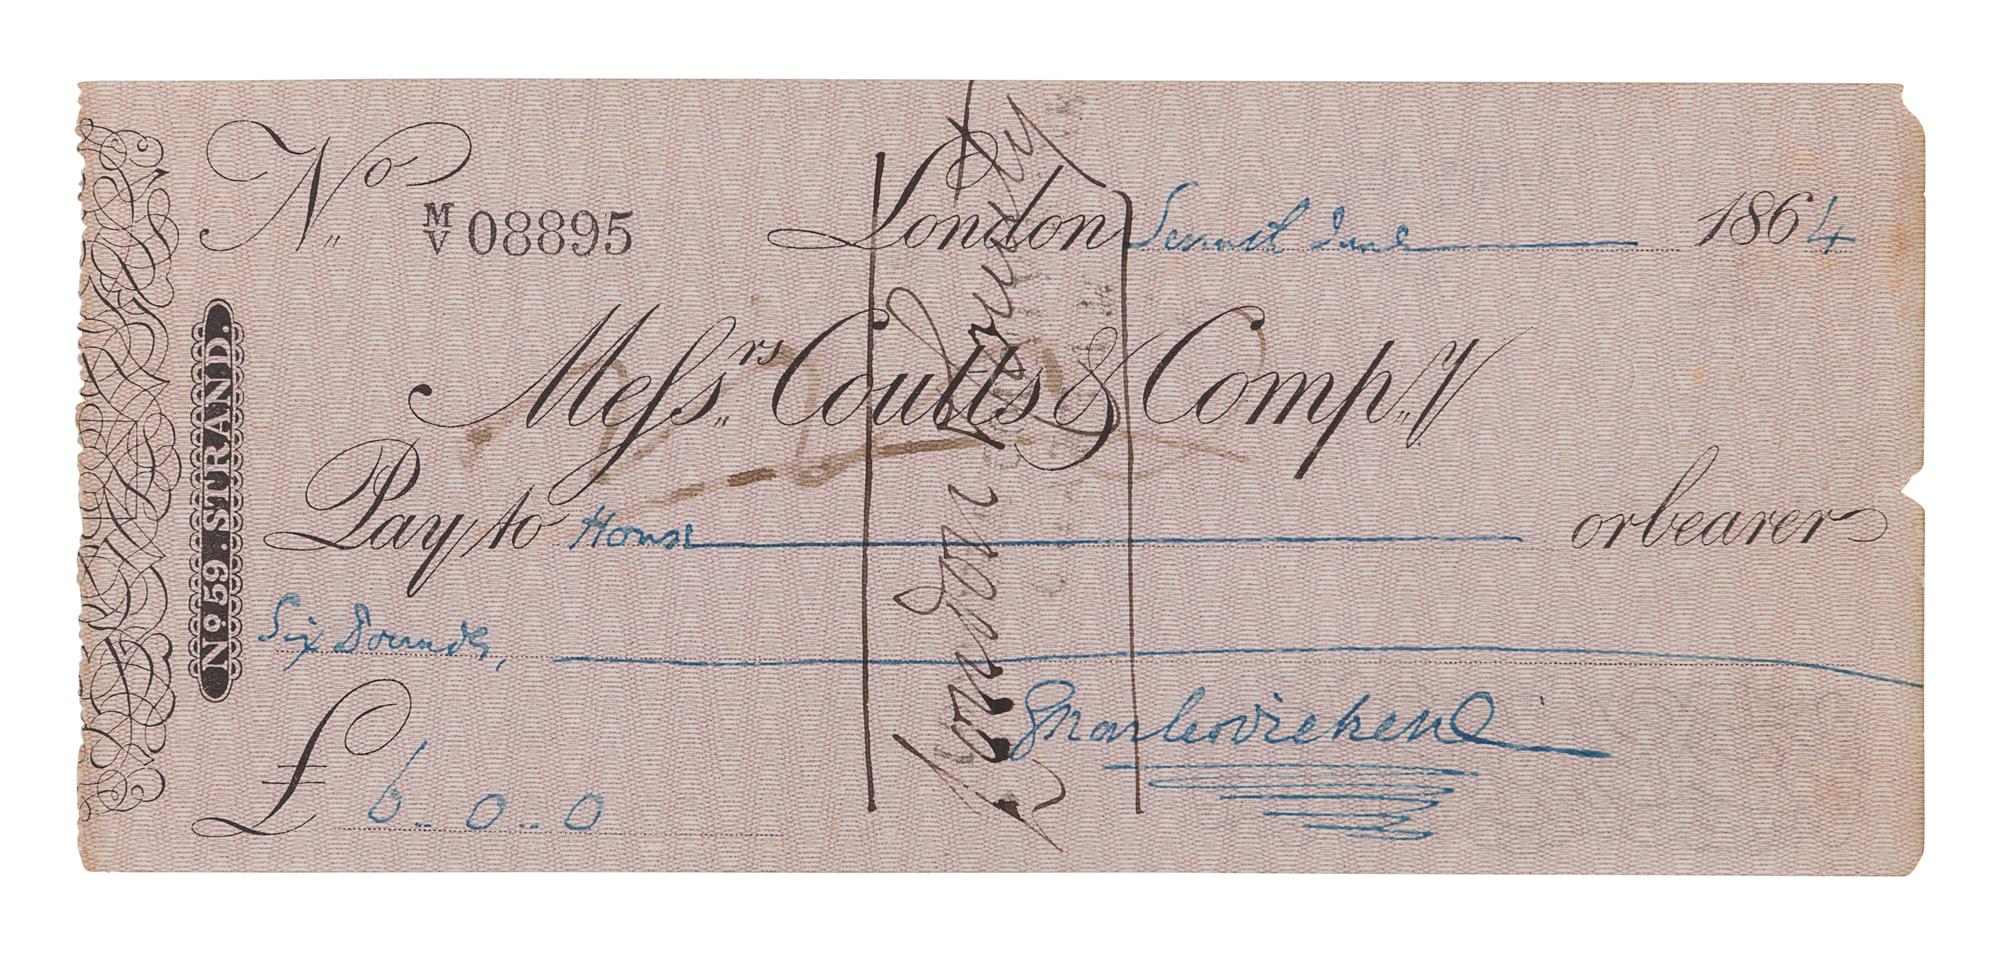 No. M/V 08895
London Seventh June 1864
Messrs. Coutts & Compy.
Pay to House or bearer
Six Pounds,
£ 6..0..0
Charles Dickens
No. 59. STRAND.
London & County